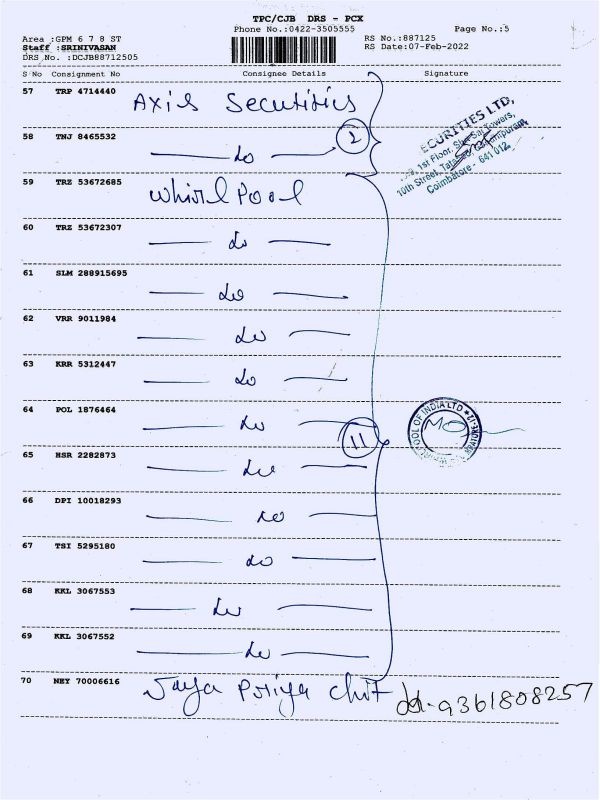 TPC/CJB DRS - PCX
Phone No.:0422-3505555
Page No.:5
Area :GPM 6 7 8 ST
RS No.:887125
Staff :SRINIVASAN
RS Date:07-Feb-2022
DRS No. :DCJB88712505
S No Consignment No Consignee Details Signature
57 TRP 4714440 Axis Securities
ECURITIES LTD,
1st Floor, Sher Sai Towers,
10th Street,
Coimbatore - 641 012.
58 TNJ 8465532 do 2
59 TRZ 53672685 Whirl Pool
60 TRZ 53672307 do
61 SLM 288915695 do
62 VRR 9011984 do
63 KRR 5312447 do
64 POL 1876464 do 11
POOL OF INDIA LTD
65 HSR 2282873 do
66 DPI 10018293 do
67 TSI 5295180 do
68 KKL 3067553 do
69 KKL 3067552 do
70 NEY 70006616 Jaya Priya chit 9361808257